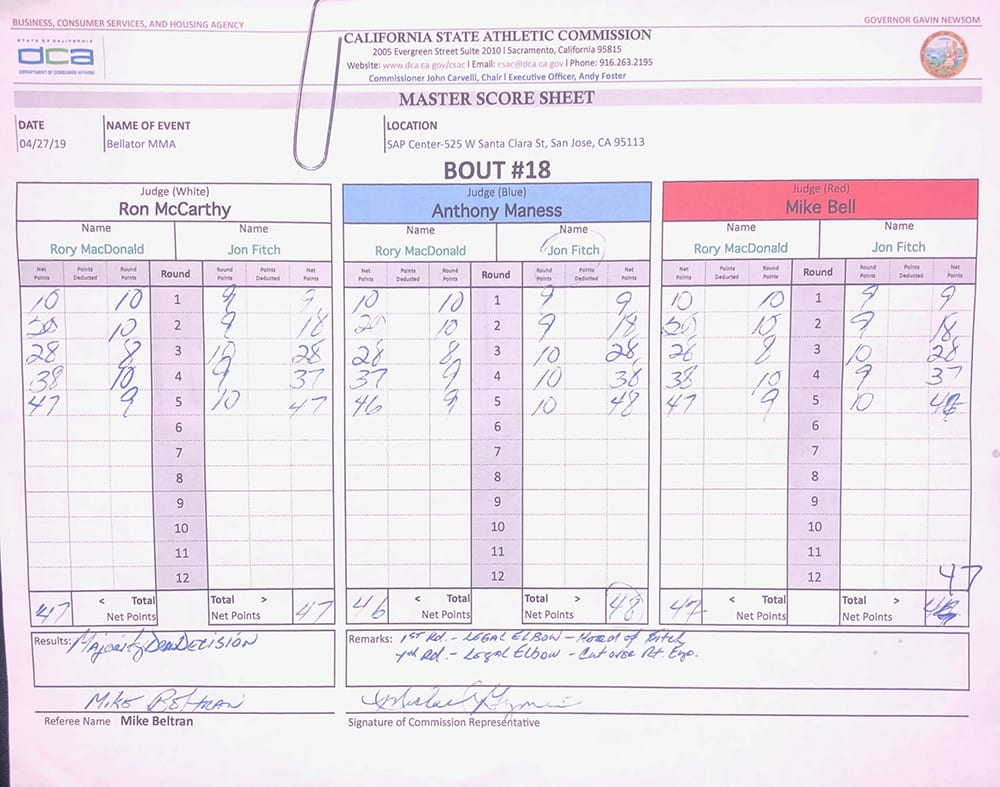 BUSINESS, CONSUMER SERVICES, AND HOUSING AGENCY GOVERNOR GAVIN NEWSOM
STATE OF CALIFORNIA
dca
DEPARTMENT OF CONSUMER AFFAIRS
CALIFORNIA STATE ATHLETIC COMMISSION
2005 Evergreen Street Suite 2010 I Sacramento, California 95815
Website: www.dca.ca.gov/csac I Email: csac@dca.ca.gov I Phone: 916.263.2195
Commissioner John Carvelli, Chair I Executive Officer, Andy Foster
MASTER SCORE SHEET
DATE NAME OF EVENT LOCATION
04/27/19 Bellator MMA SAP Center-525 W Santa Clara St, San Jose, CA 95113
BOUT #18
Judge (White) Judge (Blue) Judge (Red)
Ron McCarthy Anthony Maness Mike Bell
Name Name Name Name Name Name
Rory MacDonald Jon Fitch Rory MacDonald Jon Fitch Rory MacDonald Jon Fitch
Net Points Points Deducted Round Points Round Round Points Points Deducted Net Points Net Points Points Deducted Round Points Round Round Points Points Deducted Net Points Net Points Points Deducted Round Points Round Round Points Points Deducted Net Points
10 10 1 9 9 10 10 1 9 9 10 10 1 9 9
10 2 9 18 10 2 9 18 10 2 9 18
28 8 3 10 28 28 8 3 10 28 28 8 3 10 28
38 10 4 9 37 37 9 4 10 38 38 10 4 9 37
47 9 5 10 47 46 9 5 10 48 47 9 5 10
6 6 6
7 7 7
8 8 8
9 9 9
10 10 10
11 11 11
12 12 12 47
47 < Total Net Points Total > Net Points 47 46 < Total Net Points Total > Net Points 48 47 < Total Net Points Total > Net Points
Results: Majority DECISION
Remarks: 1ST Rd. - LEGAL ELBOW - Head of Fitch
4th Rd. - LEGAL ELBOW - Cut over Rt. Eye.
MIKE BELTRAN
Referee Name Mike Beltran Signature of Commission Representative